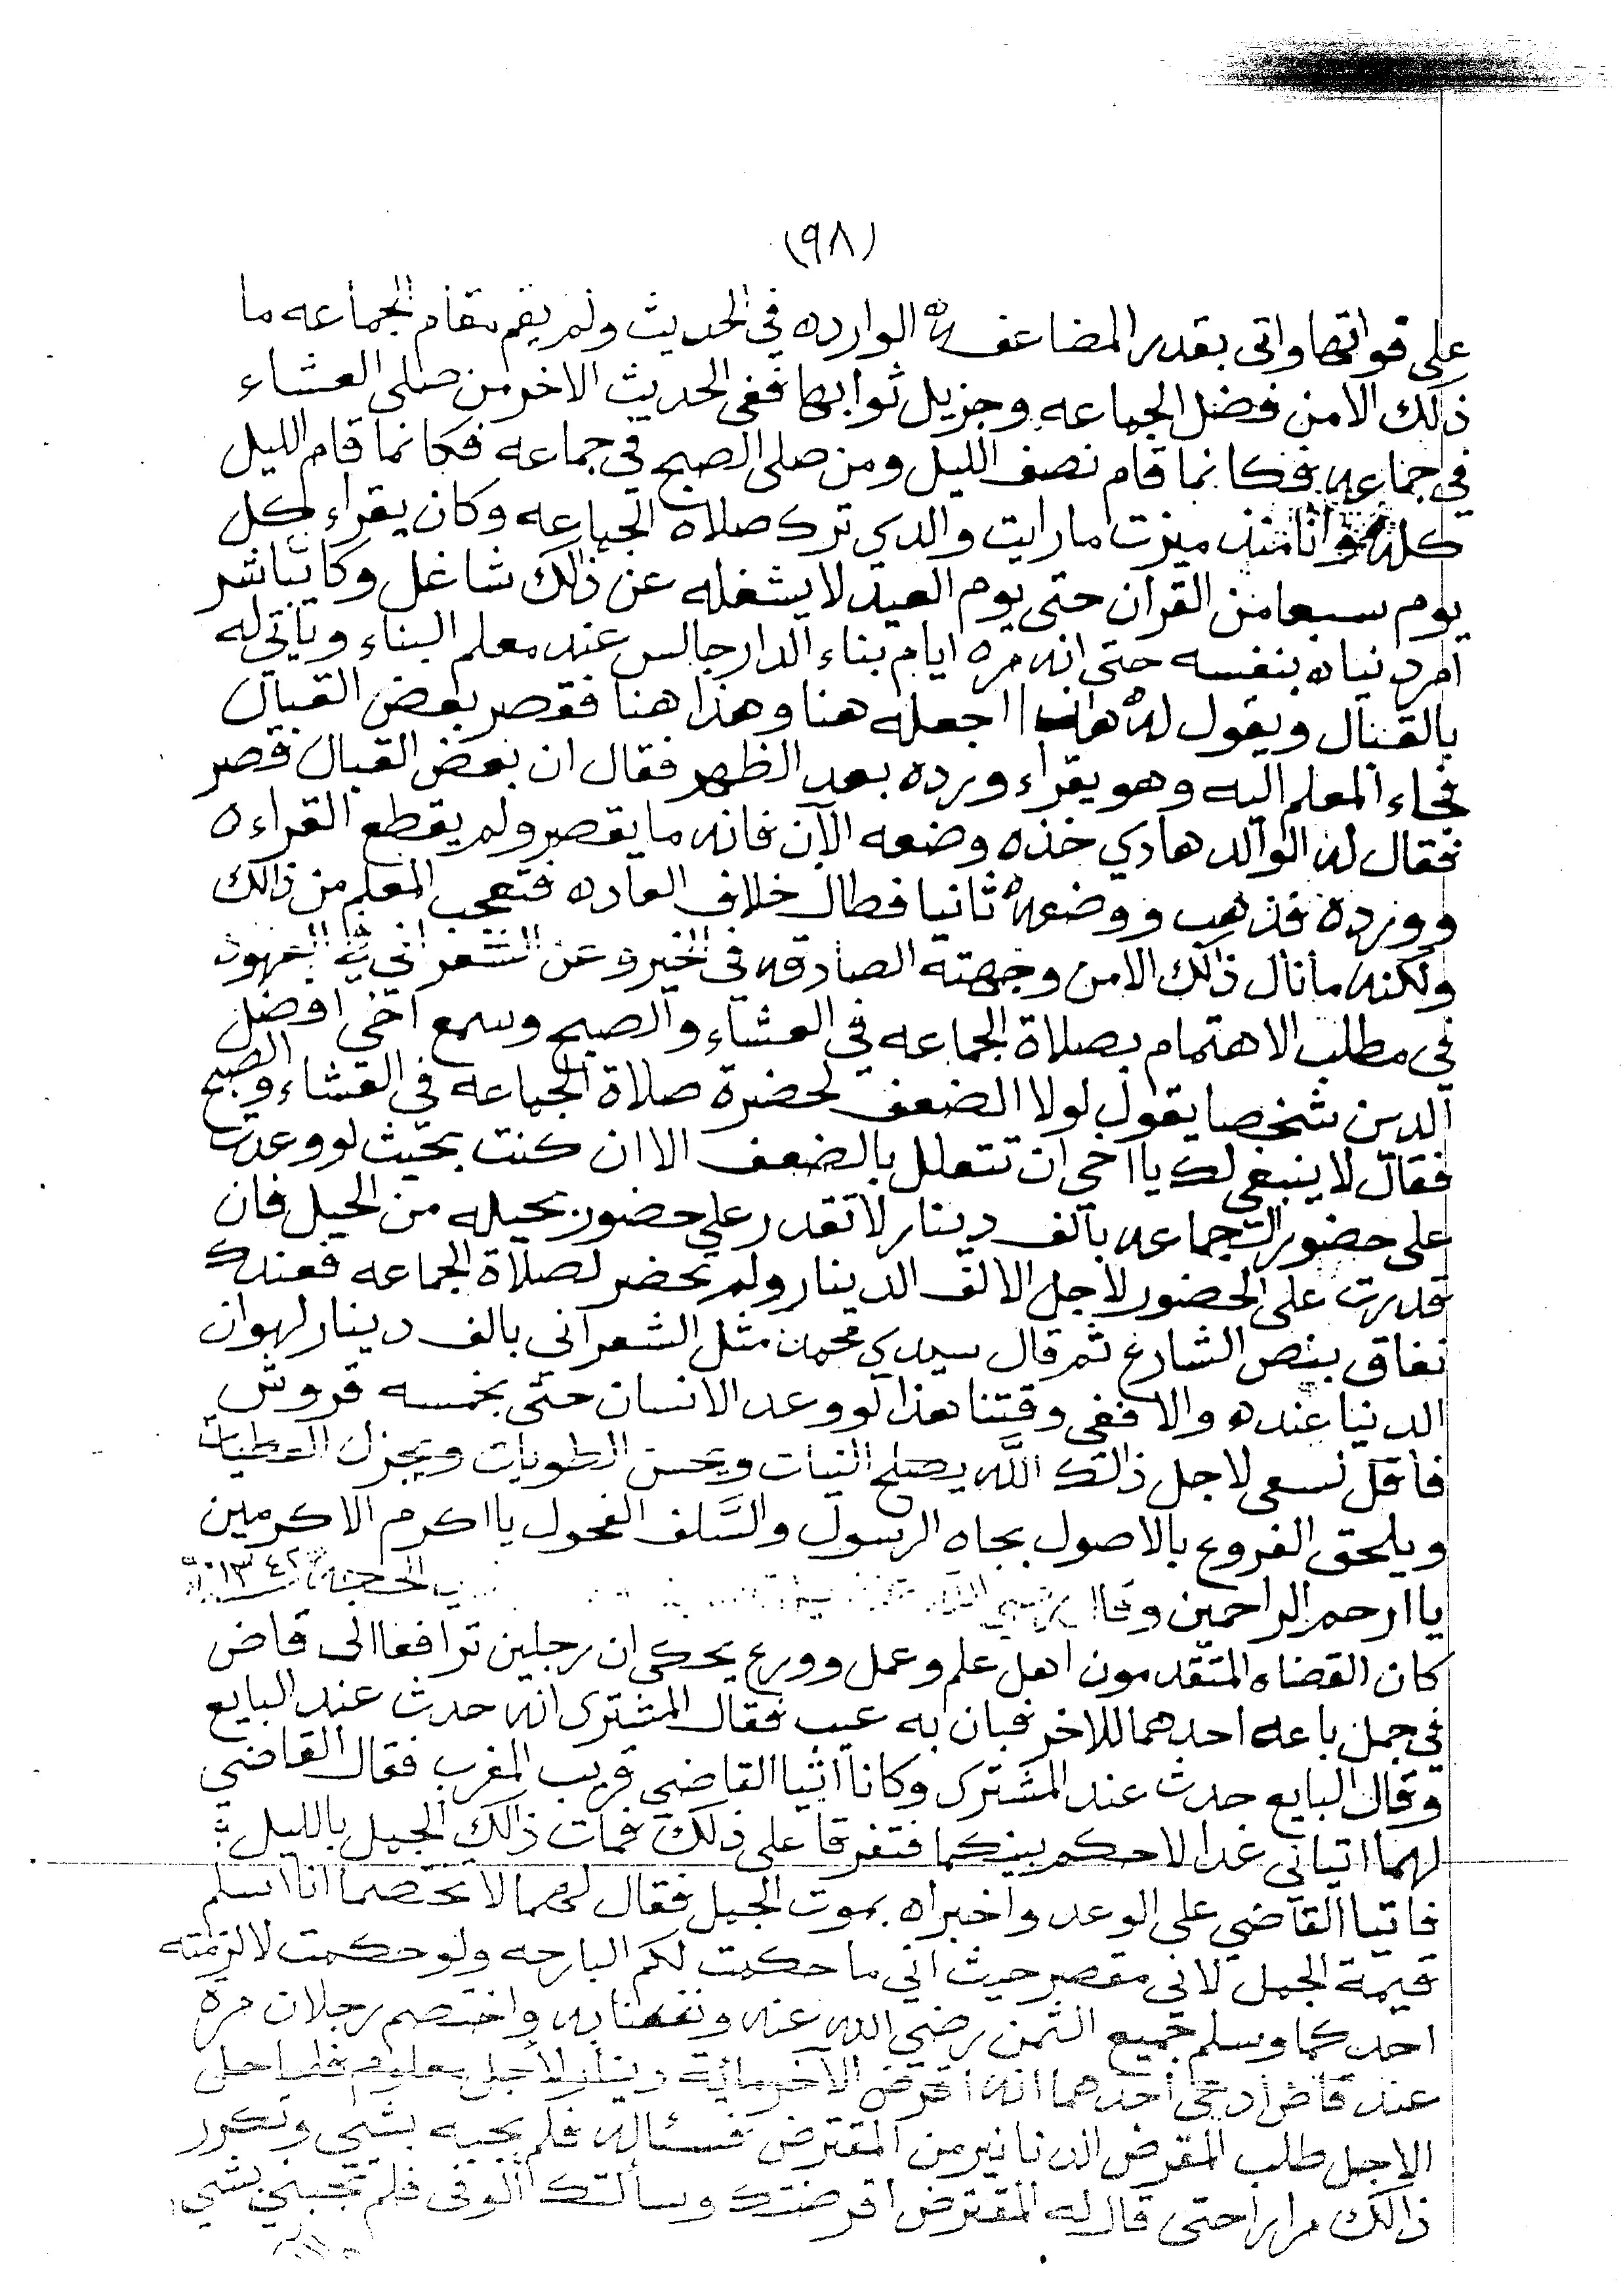 (٩٨)
على فواتها واتى بقدر المضاعفه الوارده في الحديث ولم يقم مقام الجماعه ما
ذلك الا من فضل الجماعه وجزيل ثوابها ففي الحديث الاخر من صلى العشاء
في جماعه فكانما قام نصف الليل ومن صلى الصبح في جماعه فكانما قام الليل
كله وانا منذ ميزت ما رايت والدي ترك صلاة الجماعه وكان يقراء كل
يوم سبعا من القرآن حتى يوم العيد لا يشغله عن ذالك شاغل وكان يباشر
امر دنياه بنفسه حتى انه مره ايام بناء الدار جالس عند معلم البناء وياتي له
بالقبال ويقول له هات اجعله هنا وهذا هنا فقصر بعض القبال
فجاء المعلم اليه وهو يقراء ورده بعد الظهر فقال ان بعض القبال قصر
فقال له الوالد هادي خذه وضعه الآن فانه ما يقصر ولم يقطع القراءه
وورده فذهب ووضعه ثانيا فطال خلاف العاده فتعجب المعلم من ذالك
ولكنه ما نال ذالك الا من وجهته الصادقه في الخير وعن الشعراني في العهود
في مطلب الاهتمام بصلاة الجماعه في العشاء والصبح وسمع اخي افضل
الدين شخصا يقول لولا الضعف لحضرة صلاة الجماعه في العشاء والصبح
فقال لا ينبغي لك يا اخي ان تتعلل بالضعف الا ان كنت بحيث لو وعدت
على حضور الجماعه بألف دينار لا تقدر على حضور بحيله من الحيل فان
قدرت على الحضور لاجل الالف الدينار ولم تحضر لصلاة الجماعه فعندك
نفاق بنص الشارع ثم قال سيدي محمد مثل الشعراني بالف دينار لهوان
الدنيا عنده والا ففي وقتنا هذا لو وعد الانسان حتى بخمسه قروش
فأقل لسعى لاجل ذالك الله يصلح النيات ويحسن الطويات ويجزل العطيات
ويلحق الفروع بالاصول بجاه الرسول والسَّلف الفحول يا اكرم الاكرمين
يا ارحم الراحمين وقال رضي الله الحجه ١٣٤٢
كان القضاه المتقدمون اهل علم وعمل وورع يحكى ان رجلين ترافعا الى قاض
في جمل باعه احدهما للاخر فبان به عيب فقال المشترى انه حدث عند البايع
وقال البايع حدث عند المشترى وكانا أتيا القاضي قريب المغرب فقال القاضي
لهما اتياني غدا لاحكم بينكما فتفرقا على ذلك فمات ذالك الجمل بالليل :
فاتيا القاضي على الوعد واخبراه بموت الجمل فقال لهما لا تختصما انا اسلم
قيمة الجمل لاني مقصر حيث اني ما حكمت لكم البارحه ولو حكمت لالزمته
احدكما وسلم جميع الثمن رضي الله عنه ونفعنا به واختصم رجلان مرة
عند قاض ادعى احدهما انه اقرض الآخر مائة دينار لأجل معلوم فلما حل
الاجل طلب المقرض الدنانير من المقترض فسئاله فلم يجبه بشي وتكرر
ذالك مرارا حتى قال له المقترض اقرضتك وسألتك الوفى فلم تجبني بشي